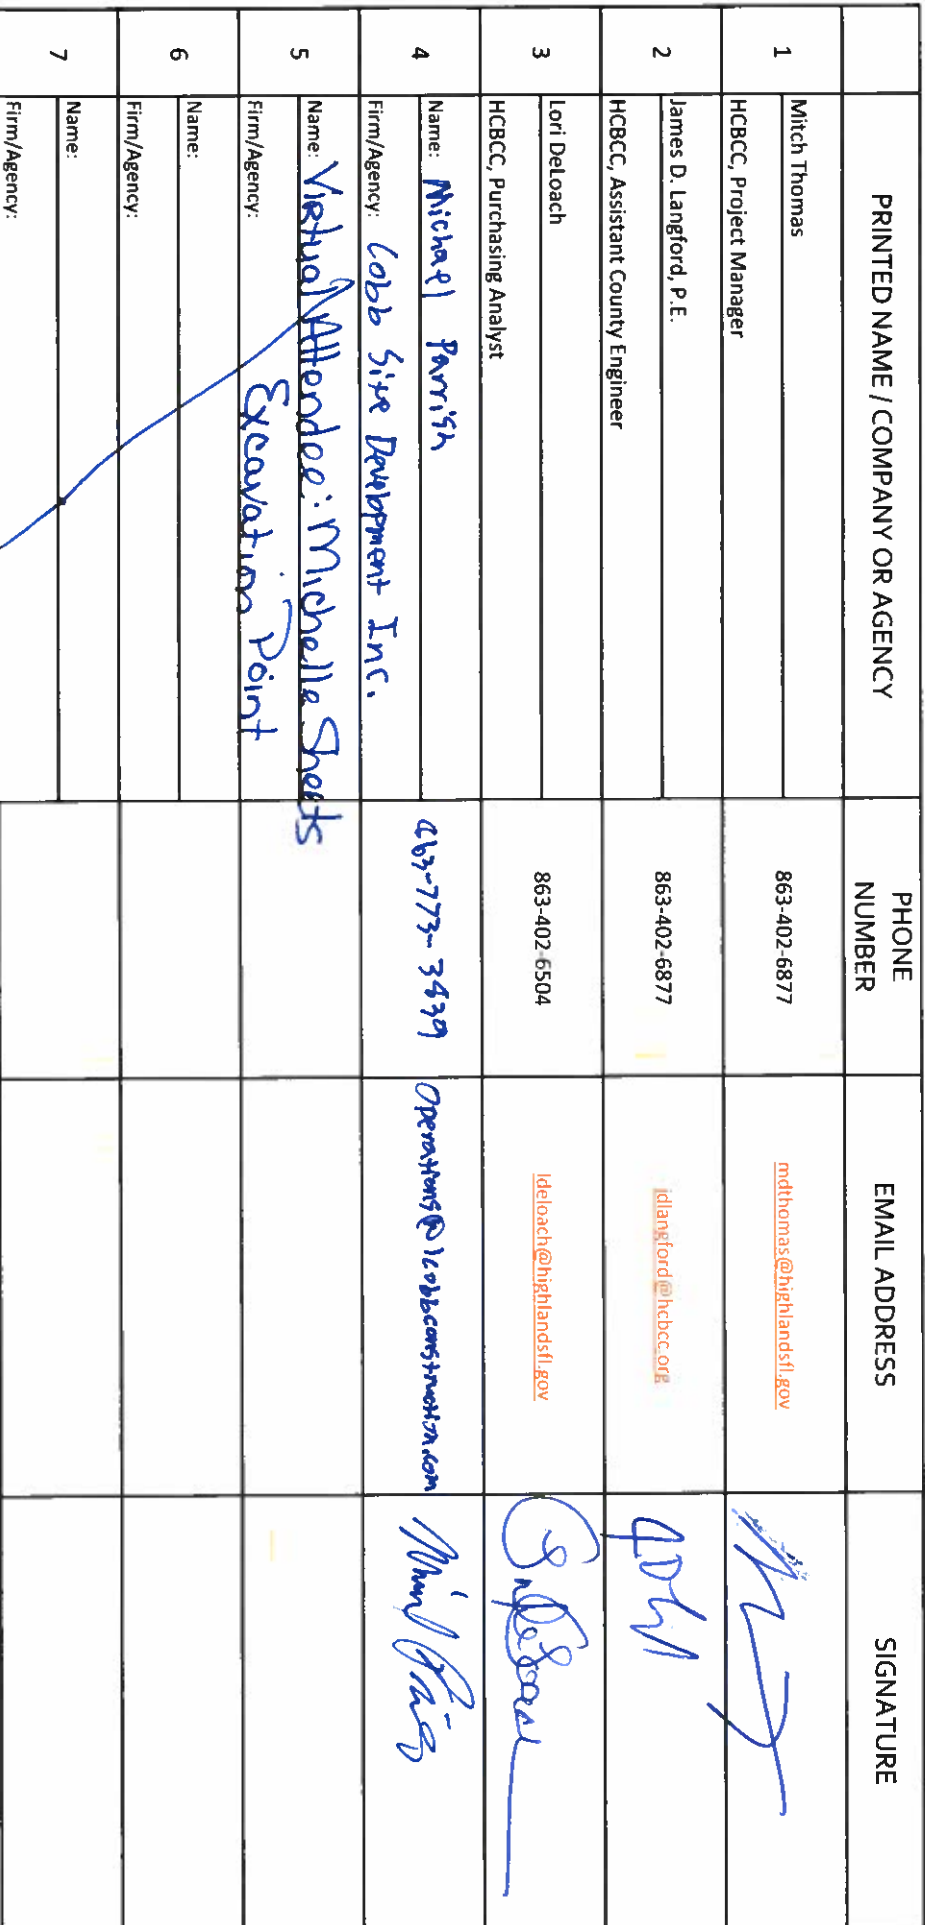 PRINTED NAME / COMPANY OR AGENCY
PHONE NUMBER
EMAIL ADDRESS
SIGNATURE
1
Mitch Thomas
HCBCC, Project Manager
863-402-6877
mdthomas@highlandsfl.gov
2
James D. Langford, P.E.
HCBCC, Assistant County Engineer
863-402-6877
jdlangford@hcbcc.org
3
Lori DeLoach
HCBCC, Purchasing Analyst
863-402-6504
ldeloach@highlandsfl.gov
4
Name: Michael Parrish
Firm/Agency: Cobb Site Development Inc.
863-773-3839
Operations@lcobbconstruction.com
5
Name: Virtual Attendee: Michelle Sheets
Firm/Agency: Excavation Point
6
Name:
Firm/Agency:
7
Name:
Firm/Agency: